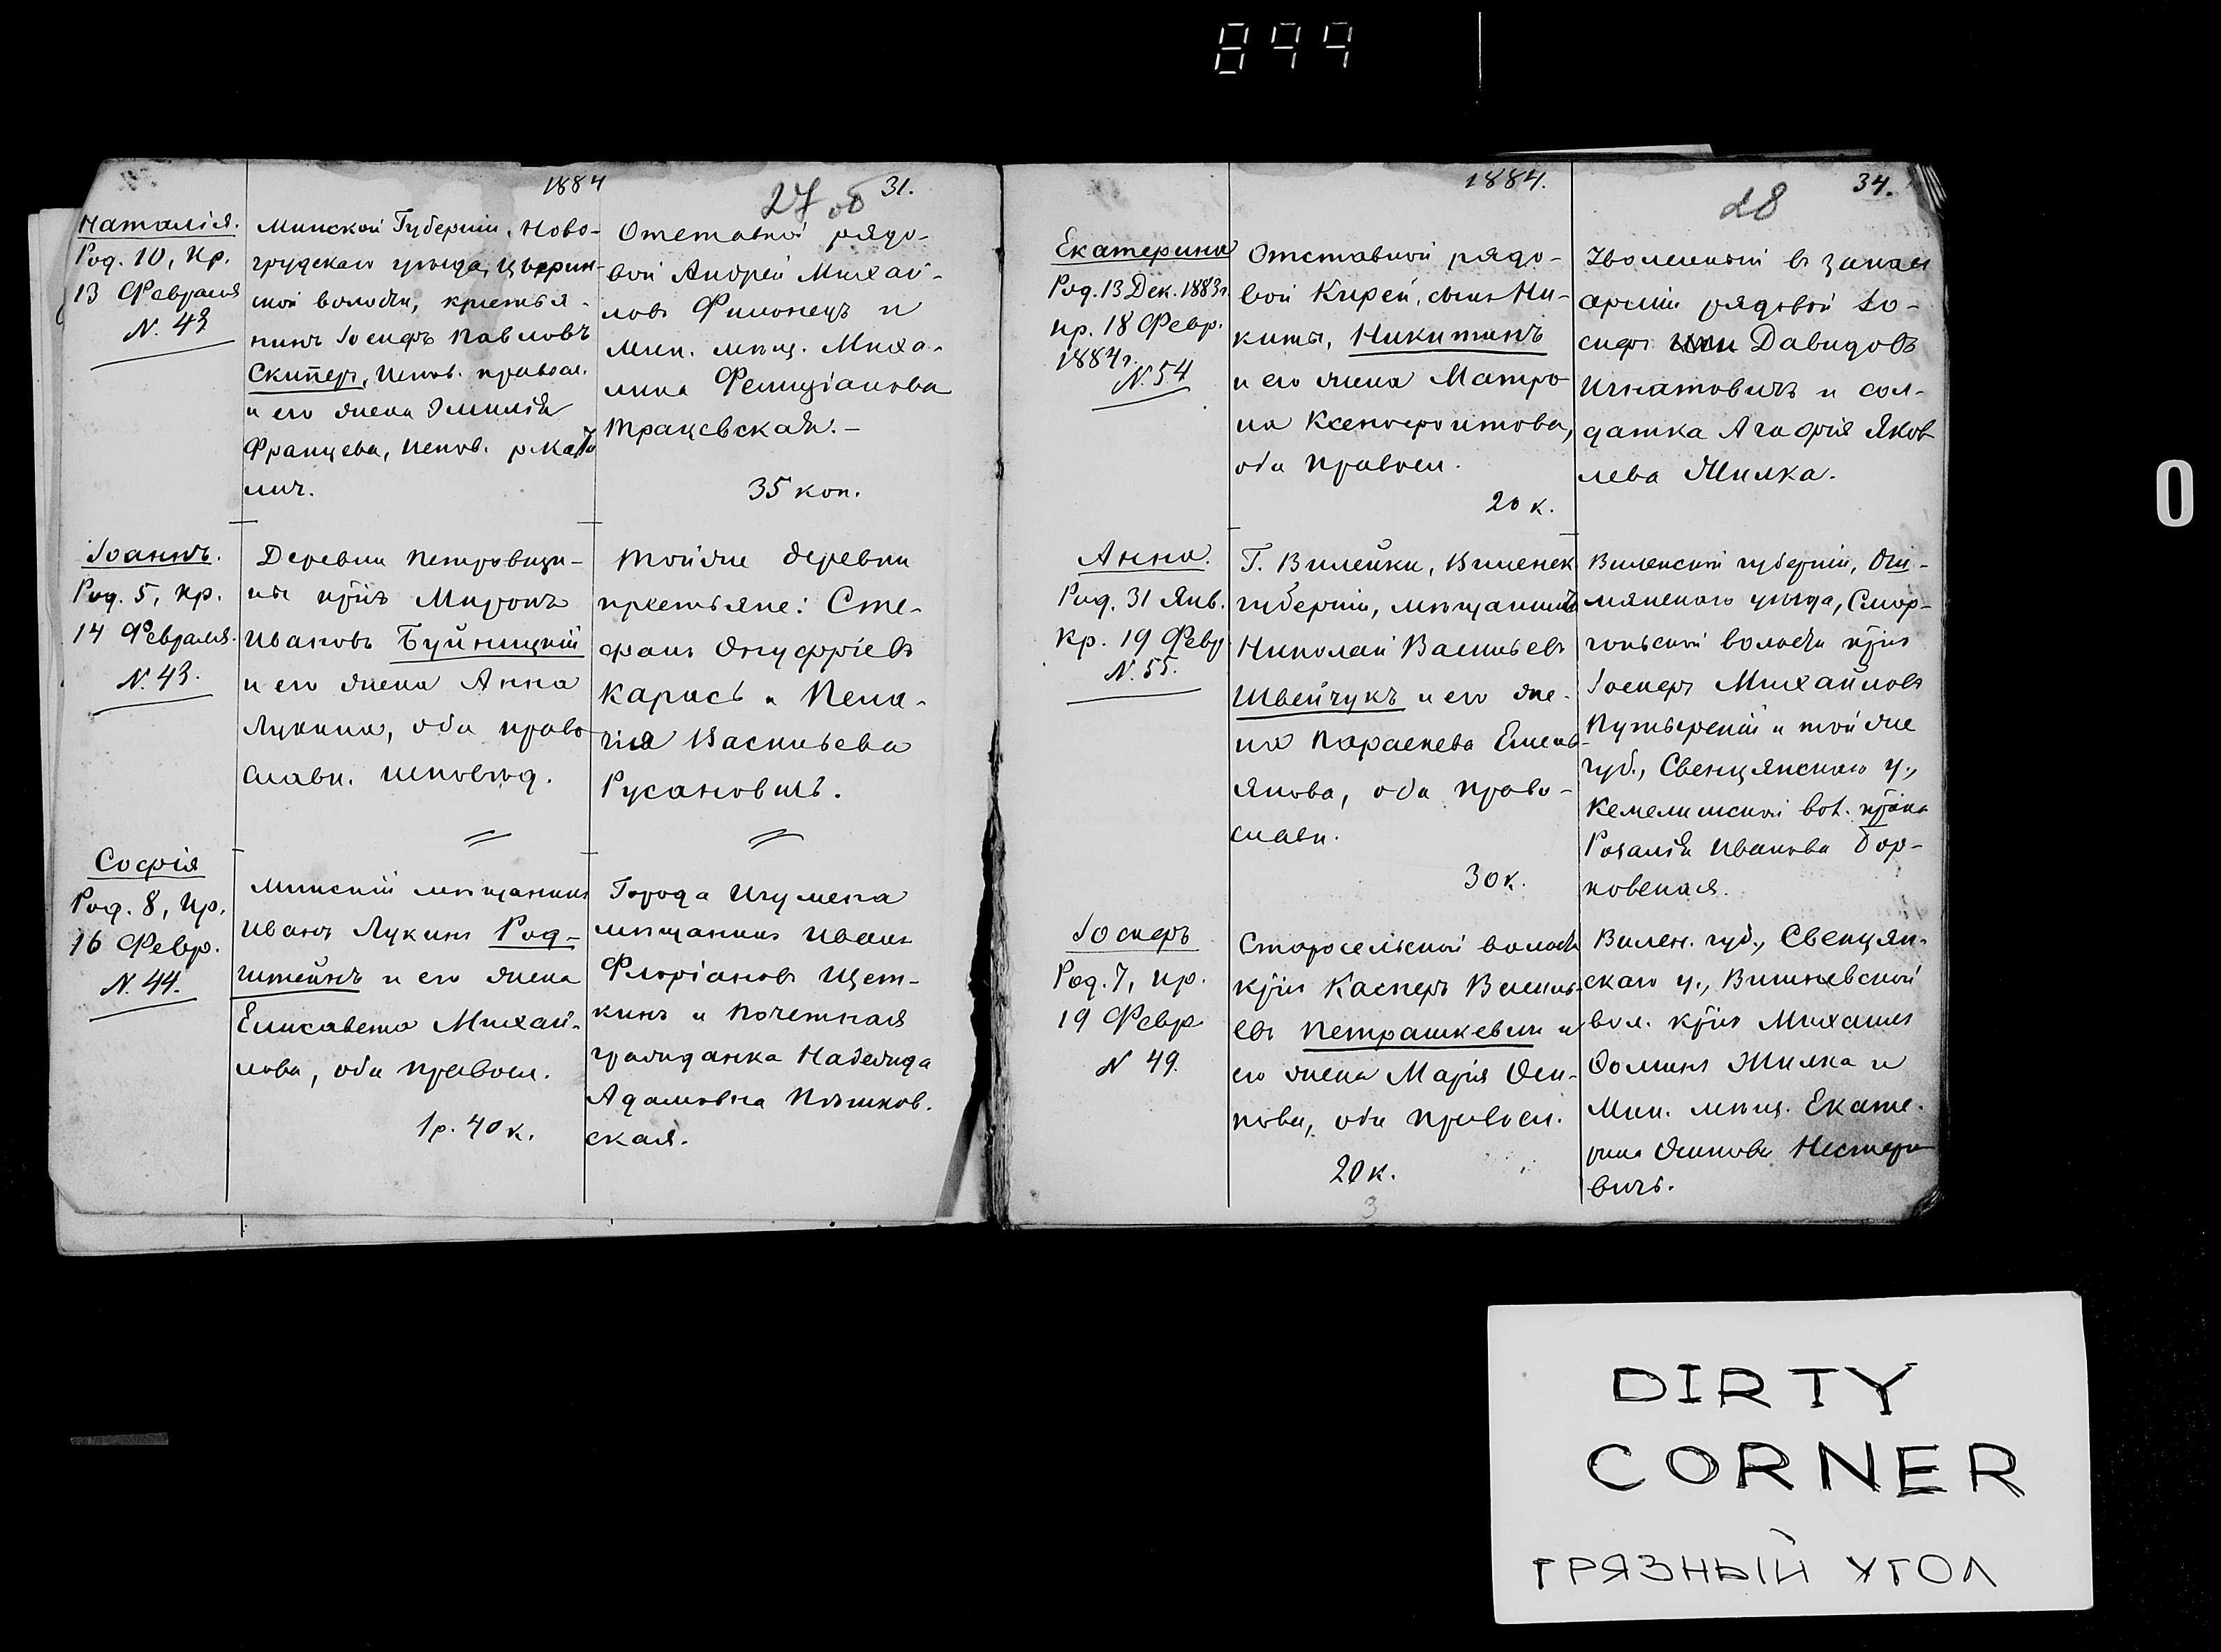 899
1884
27 об
31.
Наталія.
Род. 10, кр.
13 Февраля
N. 43
Минской Губерніи, Ново-
грудскаго уѣзда, Цырин-
ской волости, крестья-
нинъ Іосифъ Павловъ
Скиперъ, испов. правосл.
и его жена Эмилія
Францева, испов. р. като
лич.
Отставной рядо-
вой Андрей Михай-
ловъ Филонецъ и
Мин. мѣщ. Миха-
лина Фелиціанова
Трацевская.-
35 коп.
Іоаннъ.
Род. 5, кр.
14 Февраля.
N. 43.
Деревни Петровщи-
ны кр͞нъ Миронъ
Ивановъ Буйницкій
и его жена Анна
Лукина, оба право
славн. исповѣд.
Той же деревни
крестьяне: Сте-
фанъ Онуфріевъ
Карась и Пела-
гія Васильева
Русановичъ.
Софія
Род. 8, кр.
16 Февр.
N. 44.
Минскій мѣщанинъ
Иванъ Лукинъ Род-
штейнъ и его жена
Елисавета Михай-
лова, оба правосл.
1 р. 40 к.
Города Игумена
мѣщанинъ Иванъ
Флоріановъ Щет-
кинъ и почетная
гражданка Надежда
Адамовна Пѣшков-
ская.
1884.
28
34.
Екатерина
Род. 13 Дек. 1883 г.
кр. 18 Февр.
1884 г.
N. 54
Отставной рядо-
вой Кирей, сынъ Ни-
киты, Никитинъ
и его жена Матро-
на Ксенофонтова,
оба правосл.
20 к.
Уволенный въ запасъ
арміи рядовой Іо-
сифъ Давидовъ
Игнатовичъ и сол-
датка Агафія Яков
лева Жилка.
Анна.
Род. 31 Янв.
Кр. 19 Февр
N. 55.
Г. Вилейки, Виленск.
губерніи, мѣщанинъ
Николай Васильевъ
Швейчукъ и его же-
на Параскева Емель-
янова, оба право-
славн.
30 к.
Виленской губерніи, Ош-
мянскаго уѣзда, Смор-
гонской волости кр͞нъ
Іосифъ Михайловъ
и той же
губ., Свенцянскаго у.,
Кемелишской вол. кр͞нка
Розалія Иванова Бор-
ковская.
Іосифъ
Род. 7, кр.
19 Февр.
N 49.
Старосельской волости
кр͞нъ Касперъ Василь-
евъ Петрашкевичъ и
его жена Марія Оси-
пова, оба правосл.
20 к.
3
Вилен. губ., Свенцян-
скаго у., Вишневской
вол. кр͞нъ Михаилъ
Ѳоминъ Жилка и
Мин. мѣщ. Екате-
рина Осипова Нестеро
вичъ.
0
DIRTY
CORNER
ГРЯЗНЫЙ УГОЛ